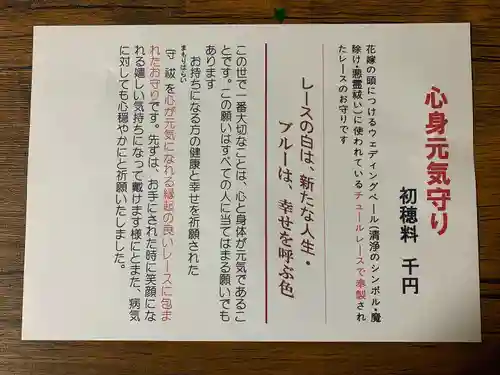 心身元気守り
初穂料 千円
花嫁の頭につけるウェディングベール(清浄のシンボル・魔
除け・悪霊祓い)に使われているチュールレースで奉製され
たレースのお守りです
レースの白は、新たな人生・
ブルーは、幸せを呼ぶ色
この世で一番大切なことは、心と身体が元気であるこ
とです。この願いはすべての人に当てはまる願いでも
あります
お持ちになる方の健康と幸せを祈願された
まもりはらい
守祓を心が元気になれる縁起の良いレースに包ま
れたお守りです。先ずは、お手にされた時に笑顔にな
れる嬉しい気持ちになって戴けます様にとまた、病気
に対しても心穏やかにと祈願いたしました。